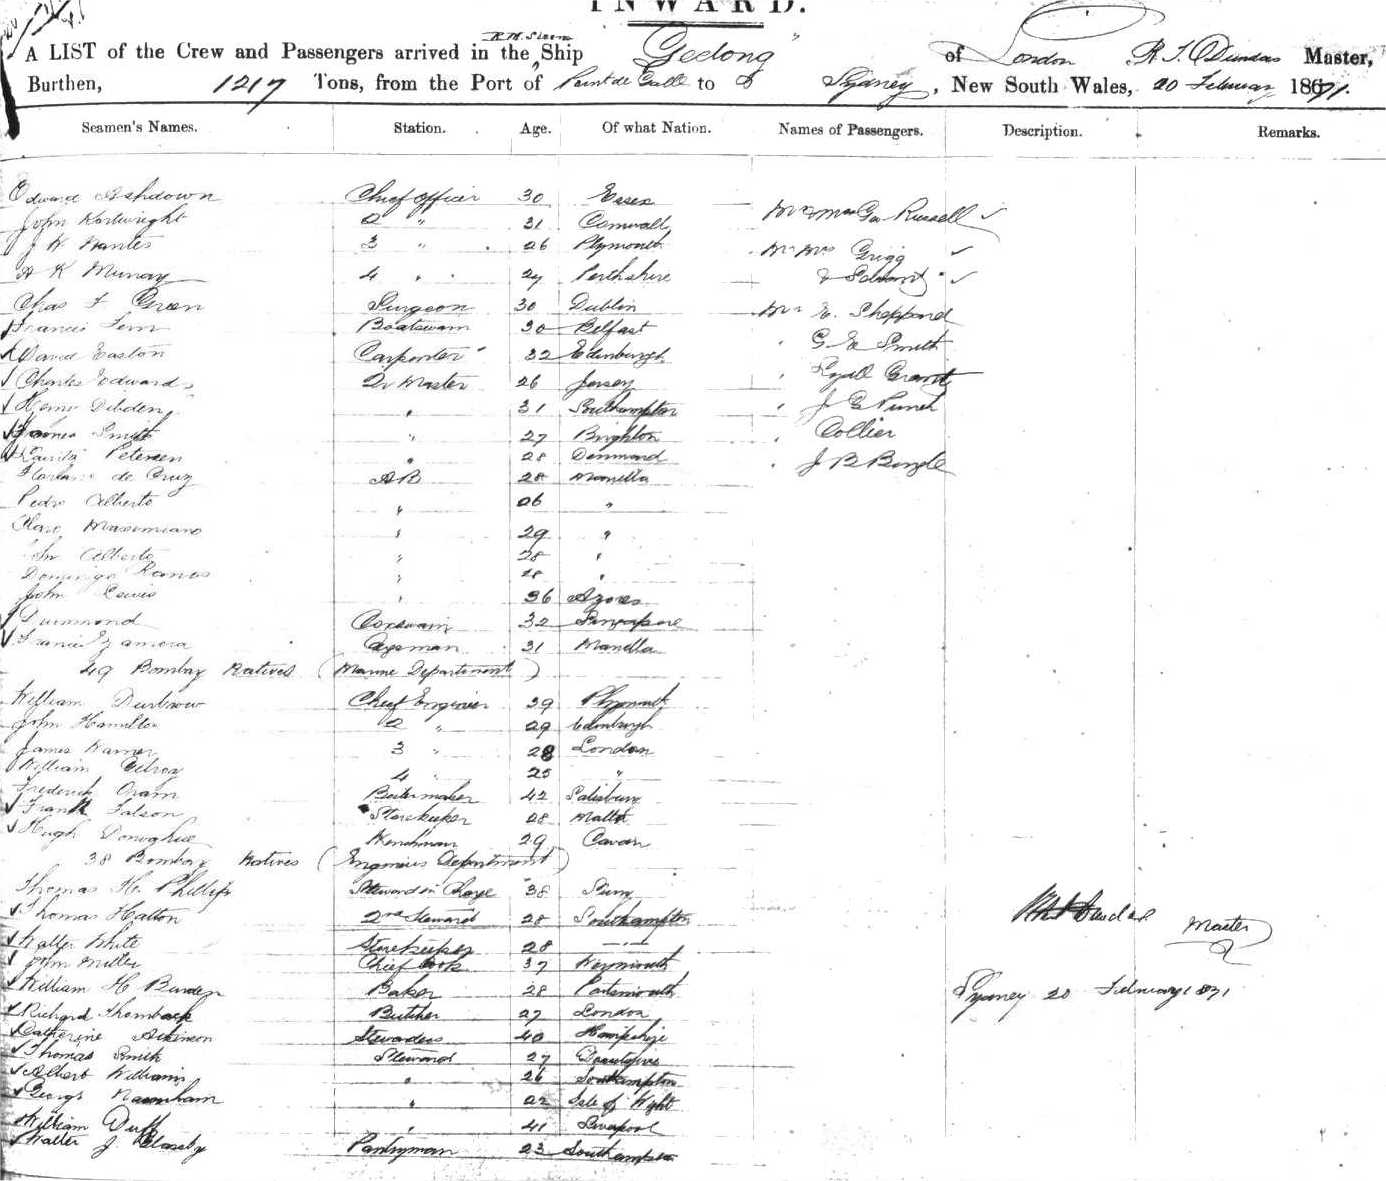 INWARD.
A LIST of the Crew and Passengers arrived in the R.M. Steam Ship "Geelong" of London R. T. Dundas Master,
Burthen, 1217 Tons, from the Port of Point de Galle to Sydney, New South Wales, 20 February 1871.
Seamen's Names. Station. Age. Of what Nation. Names of Passengers. Description. Remarks.
Edward Ashdown Chief Officer 30 Essex
John Kartwright 2 " 31 Cornwall Mr & Mrs Geo Russell ✓
J W Wantes 3 " 26 Plymouth Mr Mrs Grigg ✓
A K Murray 4 " 27 Perthshire & Servant ✓
Chas F Green Surgeon 30 Dublin Mr E. Sheppard
Francis Boatswain 30 Belfast
David Easton Carpenter 32 Edinburgh G E Smith
Charles Edwards Qr Master 26 Jersey Lyall Grant
Henry Dibden " 31 Southampton J G Punch
James Smith " 27 Brighton Collier
Petersen " 28 Denmark J B Bingle
de Cruz AB 28 Manella
Pedro Alberto " 26 "
Claro Maximiano " 29 "
John Alberto " 28 "
Domingo Ramos " 28 "
John Lewis " 36 Azores
Dummond Coxswain 32 Singapore
Zamora Cageman 31 Manella
49 Bombay Natives (Marine Department)
William Durbrow Chief Engineer 39 Plymouth
John Hamilton 2 " 29 Edinburgh
James Warner 3 " 28 London
William Gilroy 4 " 25 "
Frederick Oram Boilermaker 42 Salisbury
Frank Falson Storekeeper 28 Malta
Hugh Donoghue Wenchman 29 Cavan
38 Bombay Natives (Engineers Department)
Thomas H. Phillips Steward in Charge 38 Surry
Thomas Hatton 2nd Steward 28 Southampton Dundas Master
Walter White Storekeeper 28 —"—
John Miller Chief Cook 37 Weymouth
William H Burden Baker 28 Portsmouth Sydney 20 February 1871
Richard Thornback Butcher 27 London
Catherine Atkinson Stewardess 40 Hampshire
Thomas Smith Steward 27
Albert Williams " 26 Southampton
George Warnham " 22 Isle of Wight
William Duff " 41 Liverpool
Walter J Blaseby Pantryman 23 Southampton